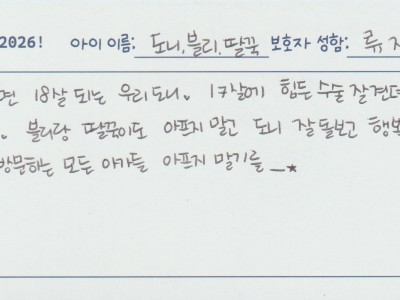 2026! 아이 이름: 도니,블리,딸꾹 보호자 성함: 류
면 18살 되는 우리 도니. 17살에 힘든 수술 잘 견뎌
. 블리랑 딸꾹이도 아프지 말고 도니 잘 돌보고 행복
방문하는 모든 아가들 아프지 말기를 _★